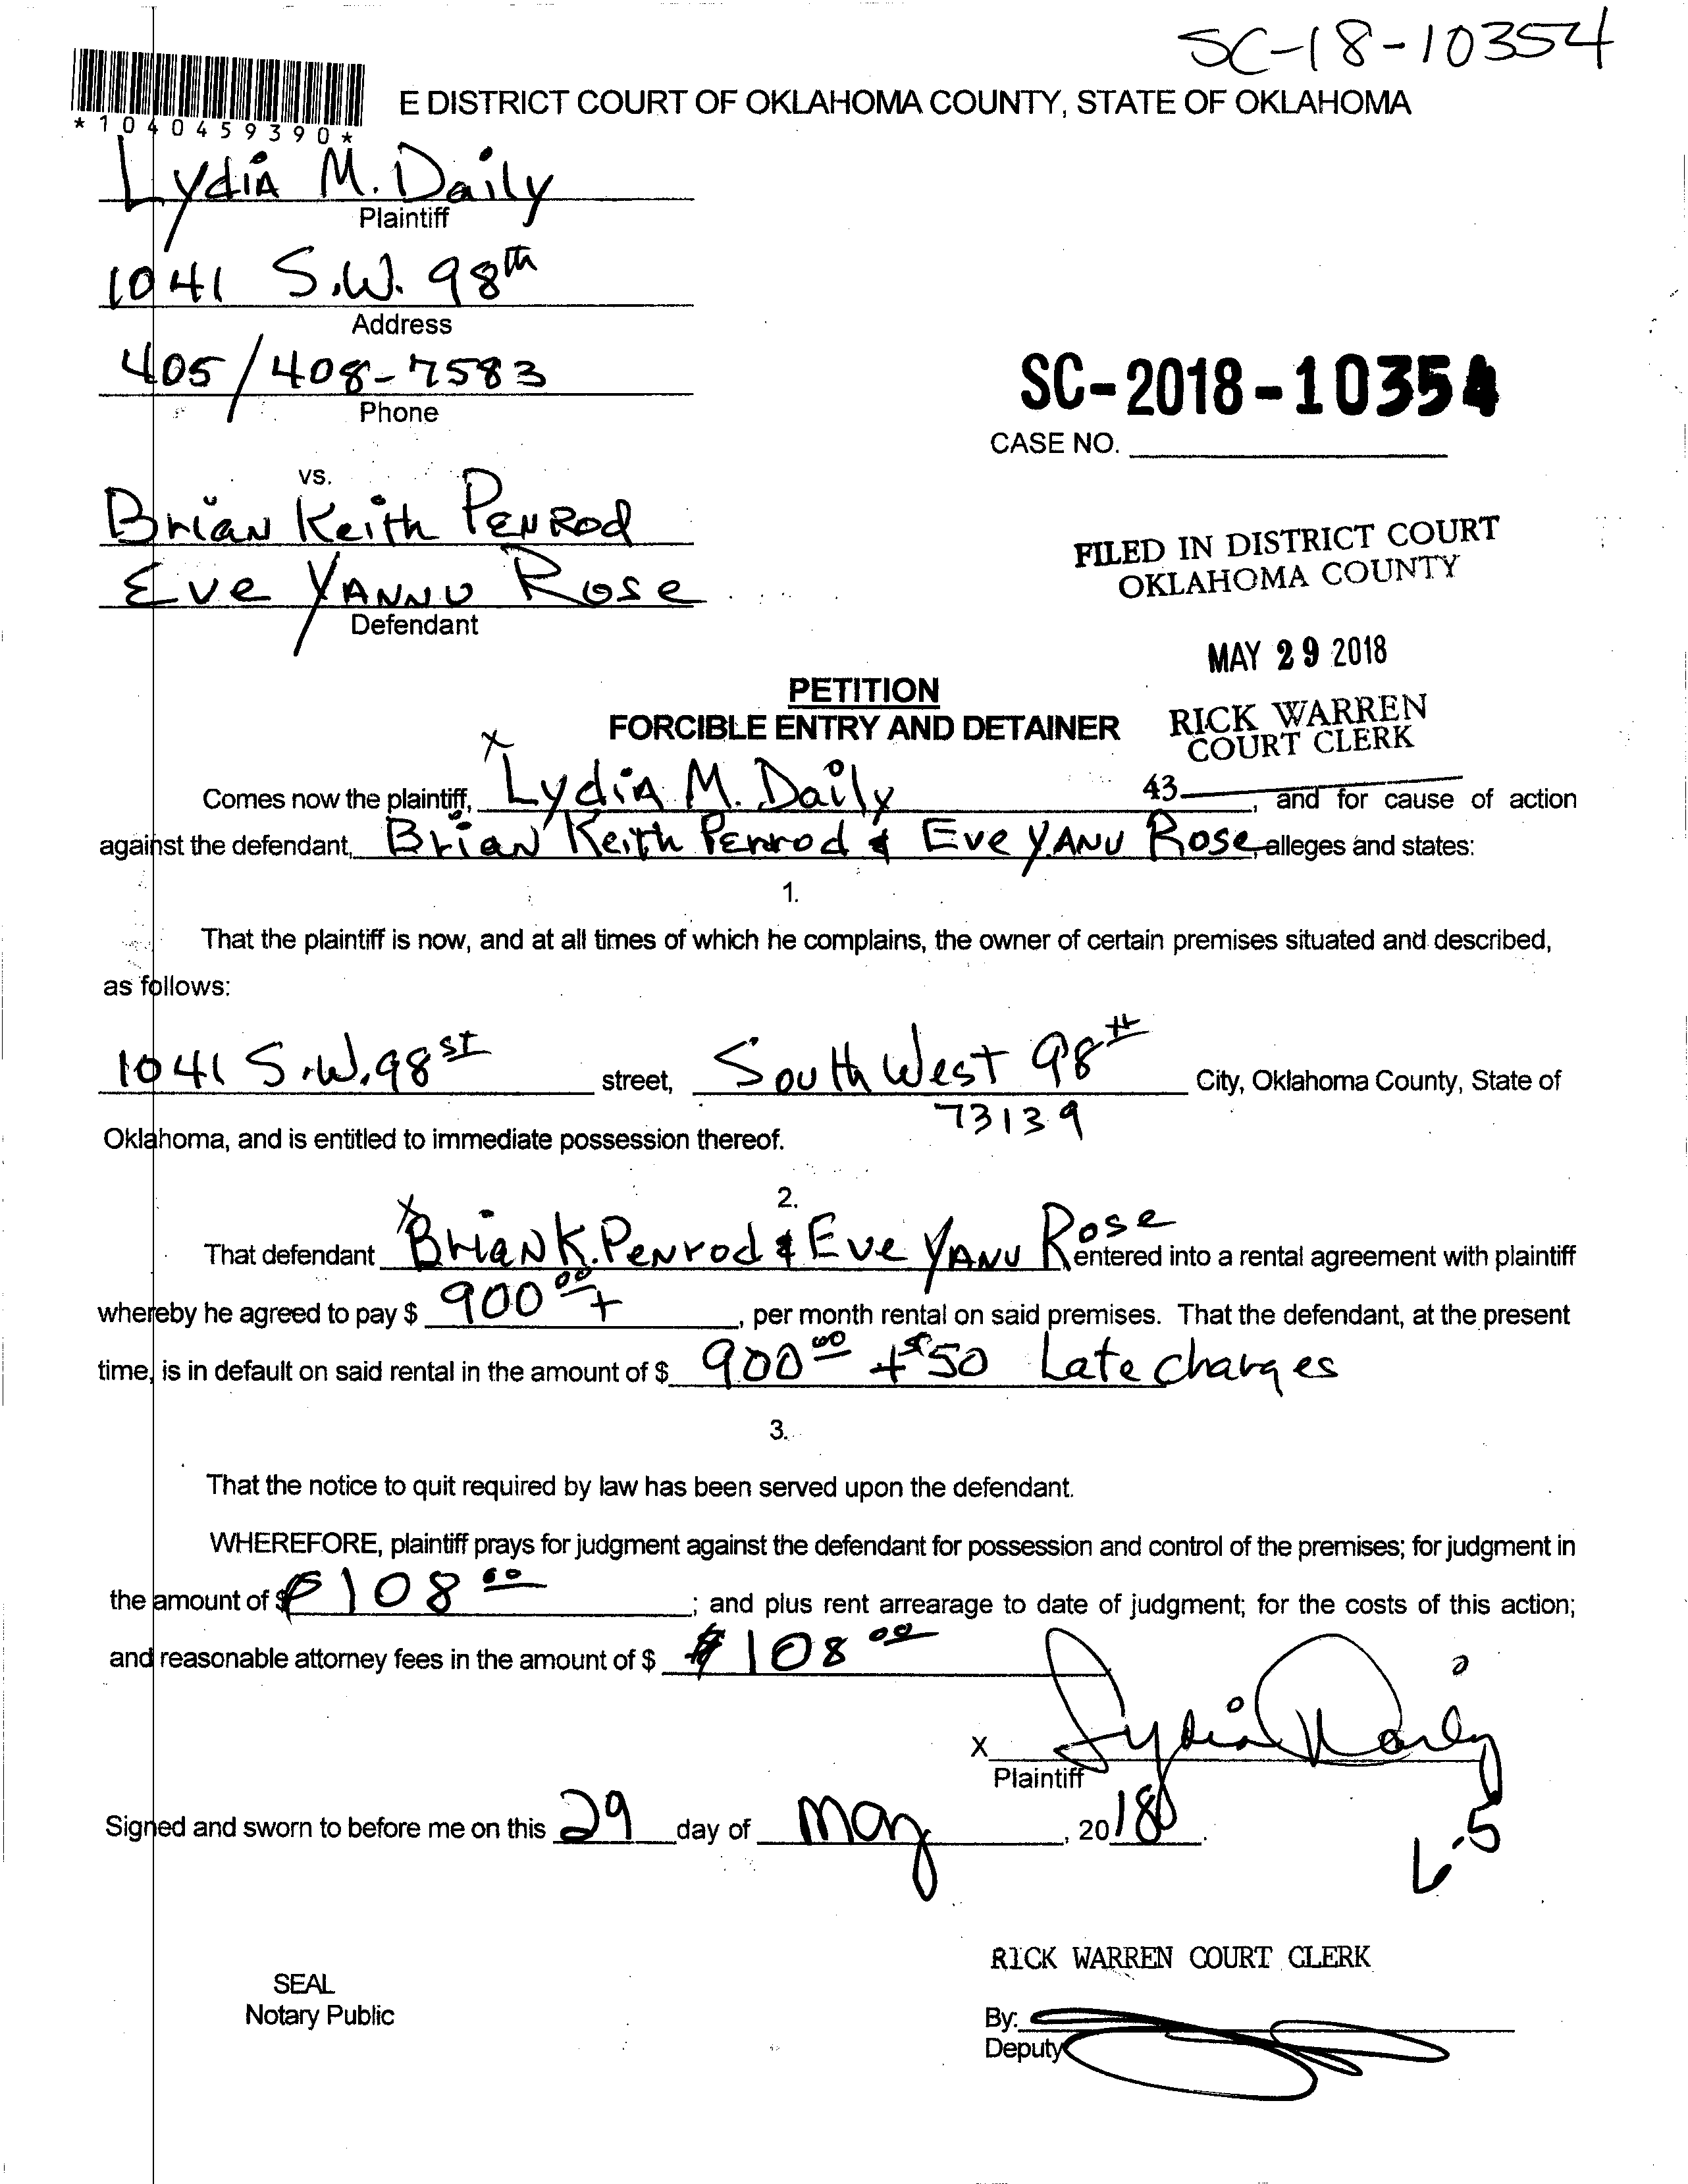 SC-18-10354
*1040459390*
E DISTRICT COURT OF OKLAHOMA COUNTY, STATE OF OKLAHOMA
Lydia M. Daily
Plaintiff
1041 S.W. 98th
Address
405/408-7583
Phone
SC-2018-10354
CASE NO.
vs.
Brian Keith Penrod
Eve Yannu Rose
Defendant
FILED IN DISTRICT COURT
OKLAHOMA COUNTY
MAY 29 2018
RICK WARREN
COURT CLERK
43
PETITION
FORCIBLE ENTRY AND DETAINER
x
Comes now the plaintiff, Lydia M. Daily, and for cause of action
against the defendant, Brian Keith Penrod & Eve Yanu Rose, alleges and states:
1.
That the plaintiff is now, and at all times of which he complains, the owner of certain premises situated and described,
as follows:
1041 S.W. 98 st street, South West 98th City, Oklahoma County, State of
73139
Oklahoma, and is entitled to immediate possession thereof.
2.
That defendant x Brian K. Penrod & Eve Yanu Rose entered into a rental agreement with plaintiff
whereby he agreed to pay $ 900 00 +, per month rental on said premises. That the defendant, at the present
time, is in default on said rental in the amount of $ 900 00 + $50 Late charges
3.
That the notice to quit required by law has been served upon the defendant.
WHEREFORE, plaintiff prays for judgment against the defendant for possession and control of the premises; for judgment in
the amount of $ 108 00; and plus rent arrearage to date of judgment; for the costs of this action;
and reasonable attorney fees in the amount of $ $108 00
X Lydia Daily
Plaintiff
Signed and sworn to before me on this 29 day of May, 2018.
6.5
RICK WARREN COURT CLERK
SEAL
Notary Public
By:
Deputy